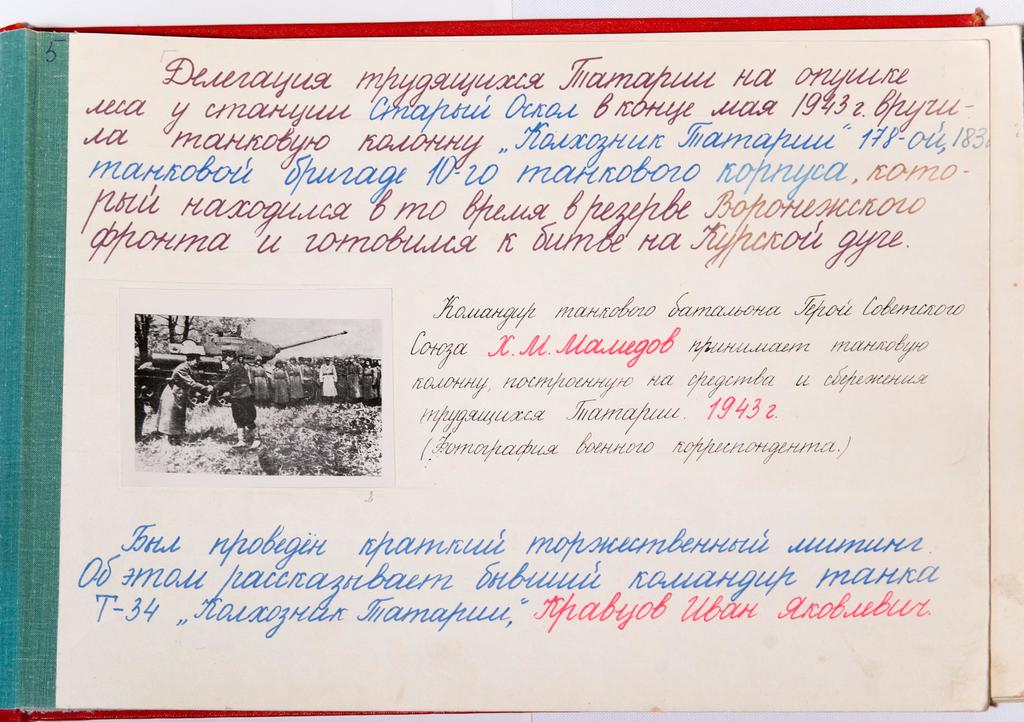 5
Делегация трудящихся Татарии на опушке
леса у станции Старый Оскол в конце мая 1943 г. вручи-
ла танковую колонну „Колхозник Татарии" 178-ой, 183
танковой бригаде 10-го танкового корпуса, кото-
рый находился в то время в резерве Воронежского
фронта и готовился к битве на Курской дуге.
Командир танкового батальона Герой Советского
Союза Х.М. Мамедов принимает танковую
колонну, построенную на средства и сбережения
трудящихся Татарии. 1943 г.
(Фотография военного корреспондента.)
Был проведён краткий торжественный митинг.
Об этом рассказывает бывший командир танка
Т-34 „Колхозник Татарии", Кравцов Иван Яковлевич.